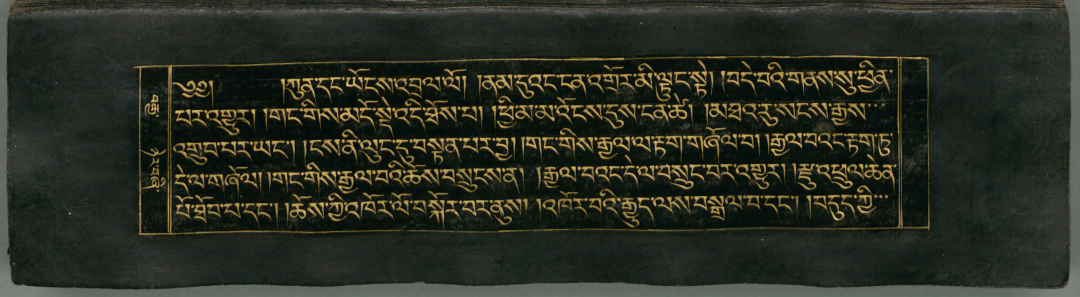 ༄༅། །ཀུན་དང་ཡོངས་འབྲལ་ལོ། །ནམ་དུའང་ངན་འགྲོར་མི་ལྟུང་སྟེ། །བདེ་བའི་གནས་སུ་ཕྱིན་
པར་འགྱུར། །གང་གིས་མདོ་སྡེ་འདི་ཐོས་པ། །ཕྱི་མ་མ་འོངས་དུས་ངན་ཚེ། །མཐའ་རུ་སངས་རྒྱས་
འགྲུབ་པར་ཡང་། །ངས་ནི་ལུང་དུ་བསྟན་པར་བྱ། །གང་གིས་རྒྱལ་ལ་རྟག་གཞོལ་བ། །རྒྱལ་བའང་རྟག་ཏུ་
དེ་ལ་གཞོལ། །གང་གིས་རྒྱལ་བའི་ཆོས་བསྲུངས་ན། །རྒྱལ་བའང་དེ་ལ་བསྲུང་བར་འགྱུར། །རྫུ་འཕྲུལ་ཆེན་
པོ་ཐོབ་པ་དང་། །ཆོས་ཀྱི་འཁོར་ལོ་བསྐོར་བར་ནུས། །འཁོར་བའི་རྒྱུད་ལས་བསྒྲལ་བ་དང་། །བདུད་ཀྱི་